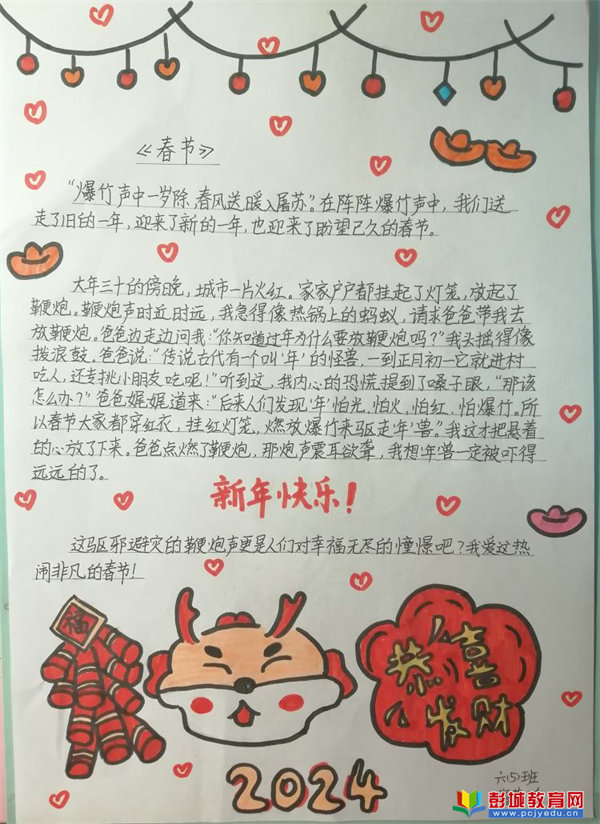 《春节》
“爆竹声中一岁除,春风送暖入屠苏”。在阵阵爆竹声中，我们送
走了旧的一年，迎来了新的一年，也迎来了盼望已久的春节。
大年三十的傍晚，城市一片火红。家家户户都挂起了灯笼，放起了
鞭炮。鞭炮声时近时远，我急得像热锅上的蚂蚁，请求爸爸带我去
放鞭炮。爸爸边走边问我：“你知道过年为什么要放鞭炮吗？”我头摇得像
拨浪鼓。爸爸说：“传说古代有一个叫‘年’的怪兽，一到正月初一它就进村
吃人，还专挑小朋友吃呢！”听到这，我内心的恐慌提到了嗓子眼，“那该
怎么办？”爸爸娓娓道来：“后来人们发现‘年’怕光，怕火，怕红，怕爆竹。所
以春节大家都穿红衣，挂红灯笼，燃放爆竹来驱走‘年’兽。”我这才把悬着
的心放了下来。爸爸点燃了鞭炮，那炮声震耳欲聋，我想‘年’兽一定被吓得
远远的了。
新年快乐！
这驱邪避灾的鞭炮声更是人们对幸福无尽的憧憬吧？我爱这热
闹非凡的春节！
福
恭喜
发财
2024
六(5)班
彭城教育网
www.pcjyedu.cn